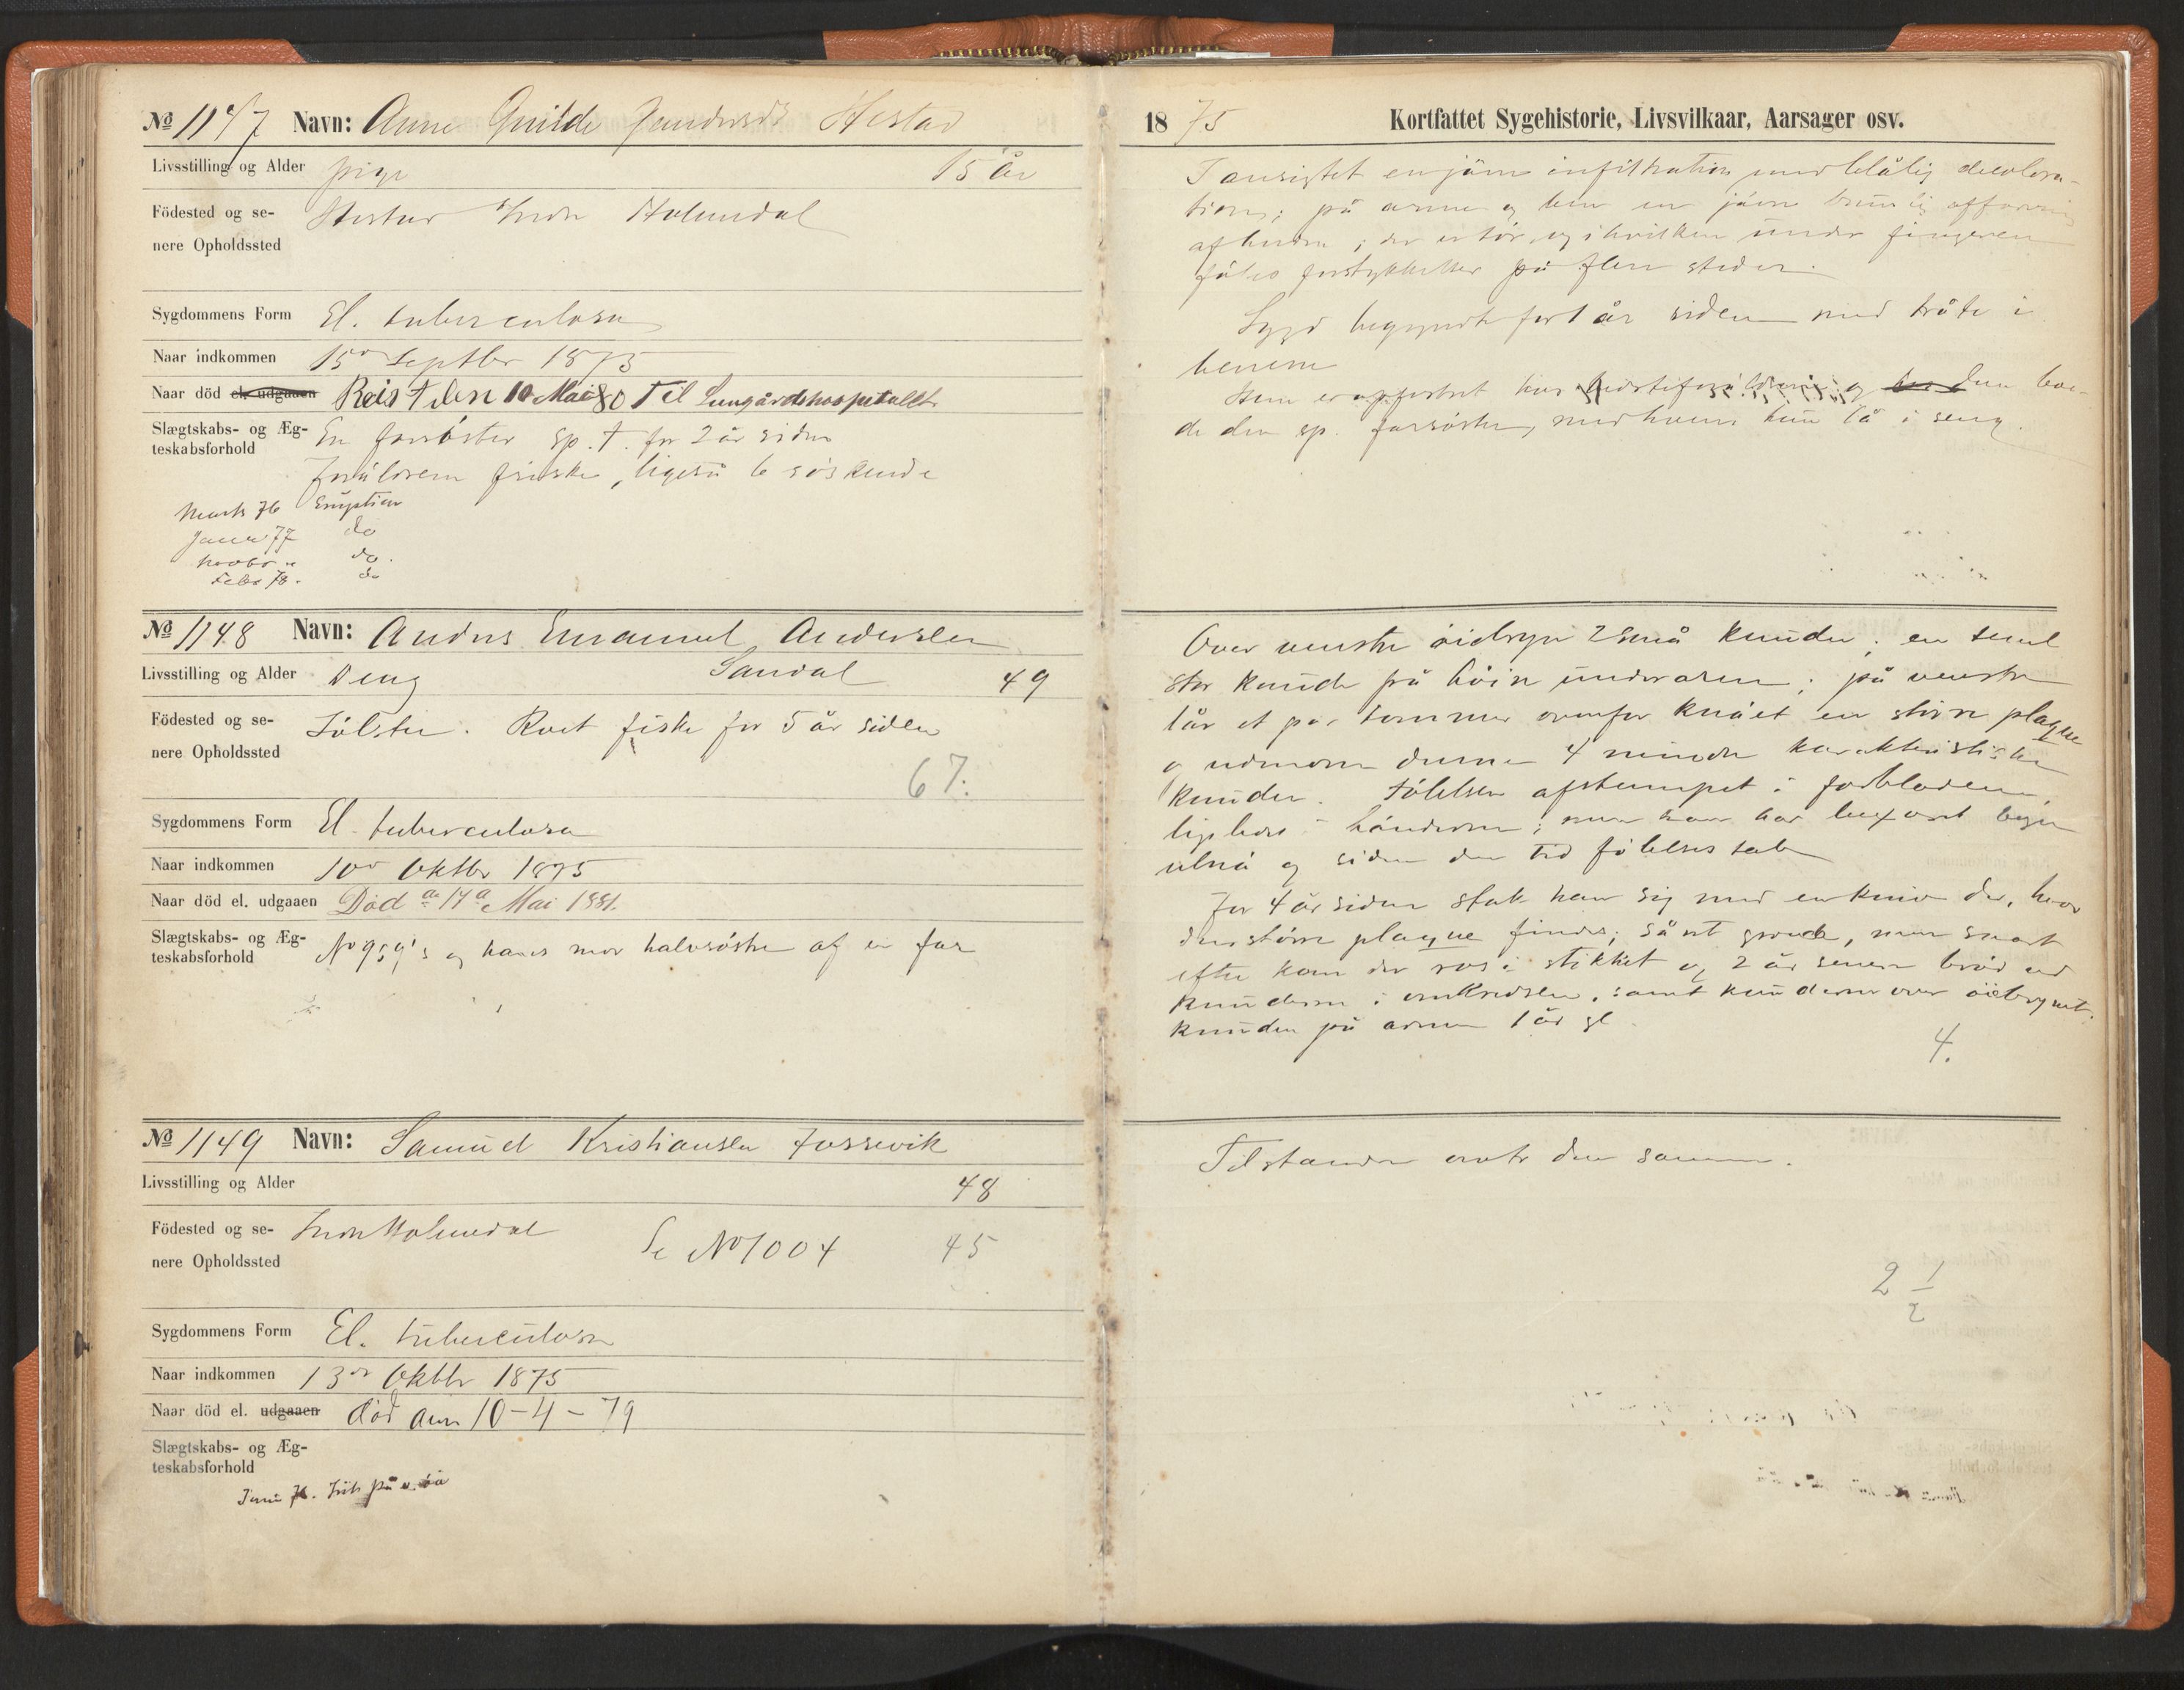 № 1147 Navn: Anne Gunilde Hestad
Livsstilling og Alder pige 15 år
Födested og se- Hestad Indre Holmedal
nere Opholdssted
Sygdommens Form El. tuberculosa
Naar indkommen 15de Septbr 1875
Naar död el. udgaaen Reist den 10 Mai 80 Til Lungårdshospitallet
Slægtskabs- og Æg- En farsöster sp. † for 2 år siden
teskabsforhold
Forældrene friske, ligeså 6 söskende
Marts 76 Eruption
Januar 77 do
Novbr " do.
Febr 78. do
№ 1148 Navn: Anders Emanuel Andersen
Sandal
Livsstilling og Alder Dreng 49
Födested og se- Jölster. Roet fiske for 5 år siden
nere Opholdssted
67.
Sygdommens Form El. tuberculosa
Naar indkommen 10de Oktbr 1875
Naar död el. udgaaen Död d. 14d Mai 1881.
Slægtskabs- og Æg- No 959's og hans mor halvsöstre af en far
teskabsforhold
№ 1149 Navn: Samuel Kristiansen Fossevik
Livsstilling og Alder 48
Födested og se- Indre Holmedal
nere Opholdssted
Se No 1004 45
Sygdommens Form El. tuberculosa
Naar indkommen 13de Oktbr 1875
Naar död el. udgaaen död den 10-4-79
Slægtskabs- og Æg-
teskabsforhold
Juni 76. Irit på v. öie
1875 Kortfattet Sygehistorie, Livsvilkaar, Aarsager osv.
I ansigtet en jävn infiltration med blålig decolora-
tion; på arme og ben en jävn brunlig affarvning
af huden; der er tör, og i hvilken under fingeren
föles fortykkelser på flere steder.
Sygd. begyndte for 1 år siden med tråte i
benene
Hun er opfostret hos bedsteforældrene og hun boe-
de den sp. farsöster, med hvem hun lå i seng.
Over venstre öiebryn 2 små knuder; en temel
stor knude på höire underarm; på venstre
lår et par tommer ovenfor knäet en större plaque
og udenom denne 4 mindre karakteristiske
knuder. Fölelsen afstumpet i fodbladene,
ligeledes i händerne; men han har
ulnå og siden den tid fölelsestab
For 4 år siden stak han sig med en kniv der, hvor
den större plaque findes; såret groede, men snart
efter kom der ros i stikket og 2 år senere bröd ud
knuderne i omkredsen, samt knuderne over öiebrynet.
knuden på armen 1 år gl.
4.
Tilstanden omtr den samme.
2 1/2